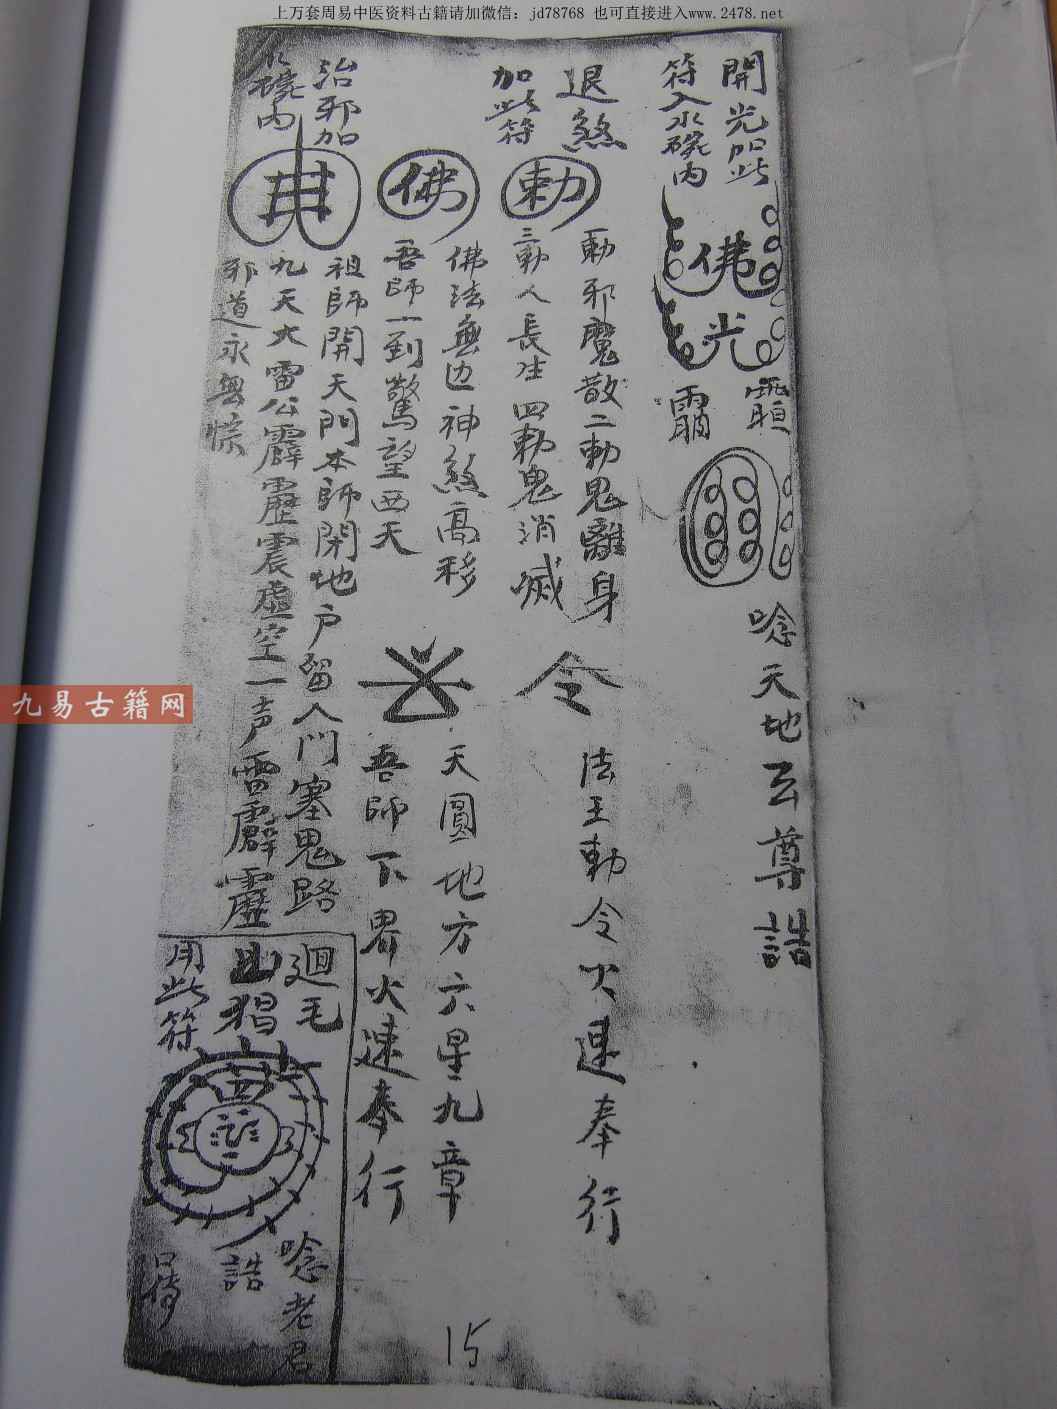 上万套周易中医资料古籍请加微信：jd78768 也可直接进入www.2478.net
開光加此
符入水碗內
佛
光
唸天地玄尊誥
退煞
加此符
勅
一勅邪魔散二勅鬼離身
三勅人長生四勅鬼消滅
令
法王勅令火速奉行
佛
佛法無边神煞高移
吾師一到驚望西天
天圓地方六星九章
吾師下界火速奉行
治邪加
水碗內
祖師開天門本師閉地户留人門塞鬼路
九天大雷公霹靂震虛空一声雷霹靂
邪道永無踪
廻毛
山猖
用此符
唸老君
誥
15
九易古籍网